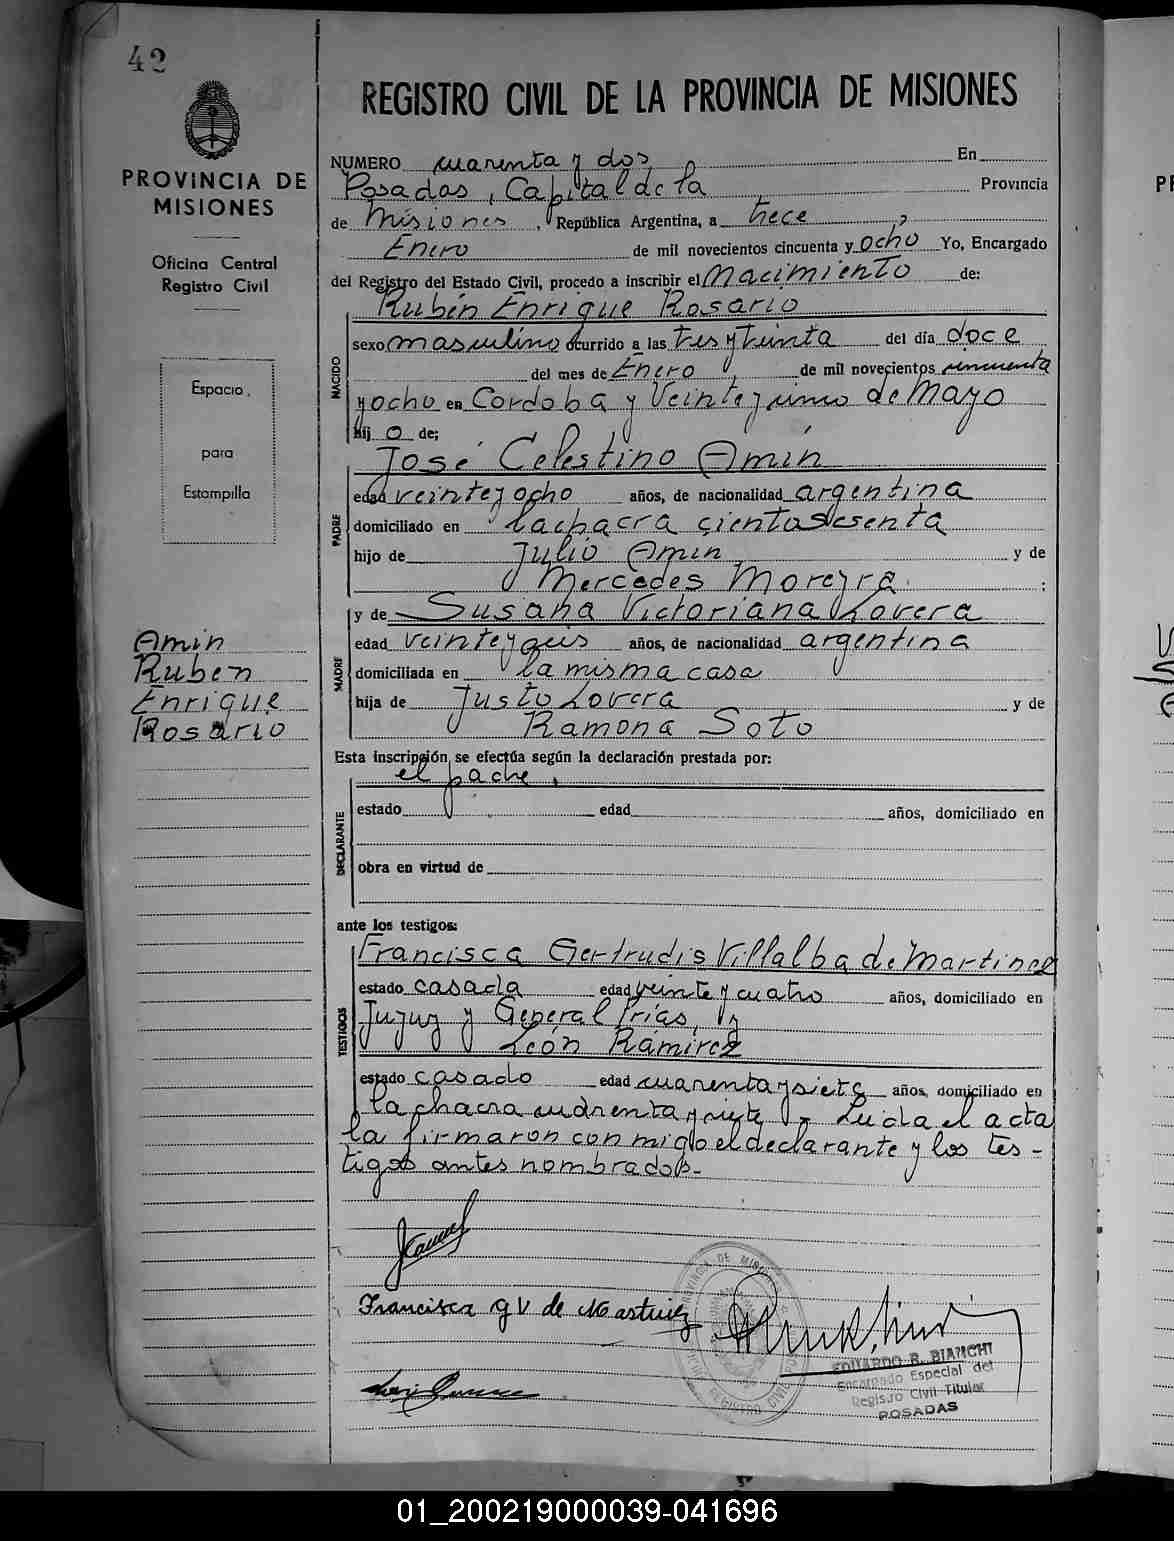 42
PROVINCIA DE
MISIONES
Oficina Central
Registro Civil
Espacio
para
Estampilla
Amin
Ruben
Enrique
Rosario
REGISTRO CIVIL DE LA PROVINCIA DE MISIONES
NUMERO cuarenta y dos En
Posadas, Capital de la Provincia
de Misiones, República Argentina, a trece,
Enero de mil novecientos cincuenta y ocho Yo, Encargado
del Registro del Estado Civil, procedo a inscribir el Nacimiento de:
Rubén Enrique Rosario
NACIDO
sexo masculino ocurrido a las tres y treinta del día doce
del mes de Enero de mil novecientos cincuenta
y ocho en Cordoba y Veinte y cinco de Mayo
hij o de;
José Celestino Amin
PADRE
edad veinte y ocho años, de nacionalidad argentina
domiciliado en la chacra ciento sesenta
hijo de Julio Amin y de
Mercedes Moreyra :
y de Susana Victoriana Lovera
MADRE
edad veinte y seis años, de nacionalidad argentina
domiciliada en la misma casa
hija de Justo Lovera y de
Ramona Soto
Esta inscripción se efectúa según la declaración prestada por:
el padre,
DECLARANTE
estado edad años, domiciliado en
obra en virtud de
ante los testigos:
Francisca Gertrudis Villalba de Martinez
TESTIGOS
estado casada edad veinte y cuatro años, domiciliado en
Jujuy y General Frías, y
León Ramirez
estado casado edad cuarenta y siete años, domiciliado en
la chacra cuarenta y siete Leida el acta
la firmaron conmigo el declarante y los tes-
tigos antes nombrados.-
Francisca G V de Martinez
EDUARDO R. BIANCHI
Encargado Especial del
Registro Civil Titular
POSADAS
01_200219000039-041696